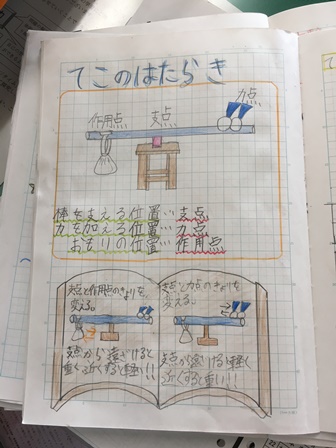 てこのはたらき
力点
作用点 支点
棒を支える位置…支点
力を加える位置…力点
おもりの位置…作用点
支点と作用点のきょりを、
変える。
支点から遠ざけると
重く近くすると軽い!!
支点と力点のきょりを
変える。
支点から遠ざけると軽く
近くすると重い!!